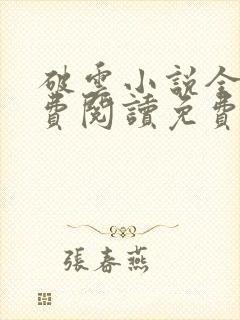 破雲小說全
費閱讀免費
張春燕